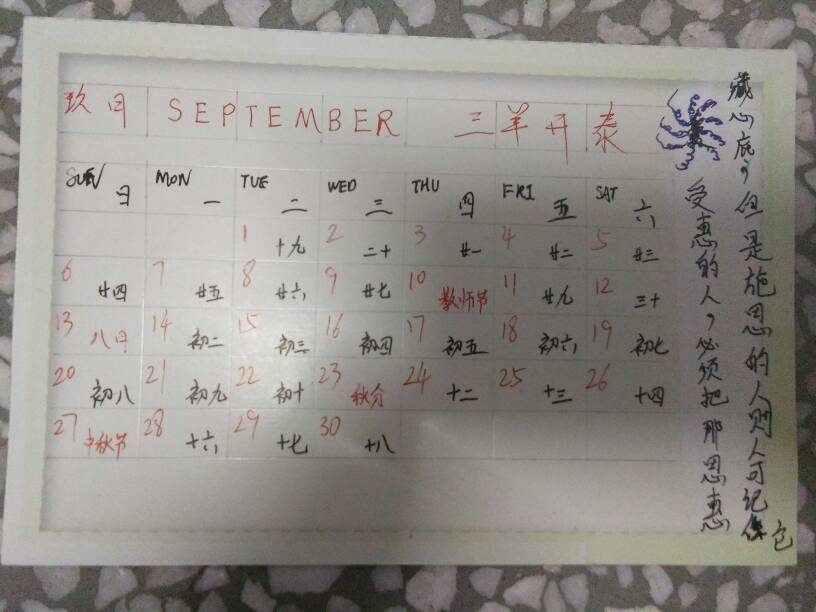 玖月 SEPTEMBER 三羊开泰
SUN 日 MON 一 TUE 二 WED 三 THU 四 FRI 五 SAT 六
1 十九 2 二十 3 廿一 4 廿二 5 廿三
6 廿四 7 廿五 8 廿六 9 廿七 10 教师节 11 廿九 12 三十
13 八月 14 初二 15 初三 16 初四 17 初五 18 初六 19 初七
20 初八 21 初九 22 初十 23 秋分 24 十二 25 十三 26 十四
27 中秋节 28 十六 29 十七 30 十八
受惠的人，必须把那恩惠
藏心底，但是施恩的人则不可记
它